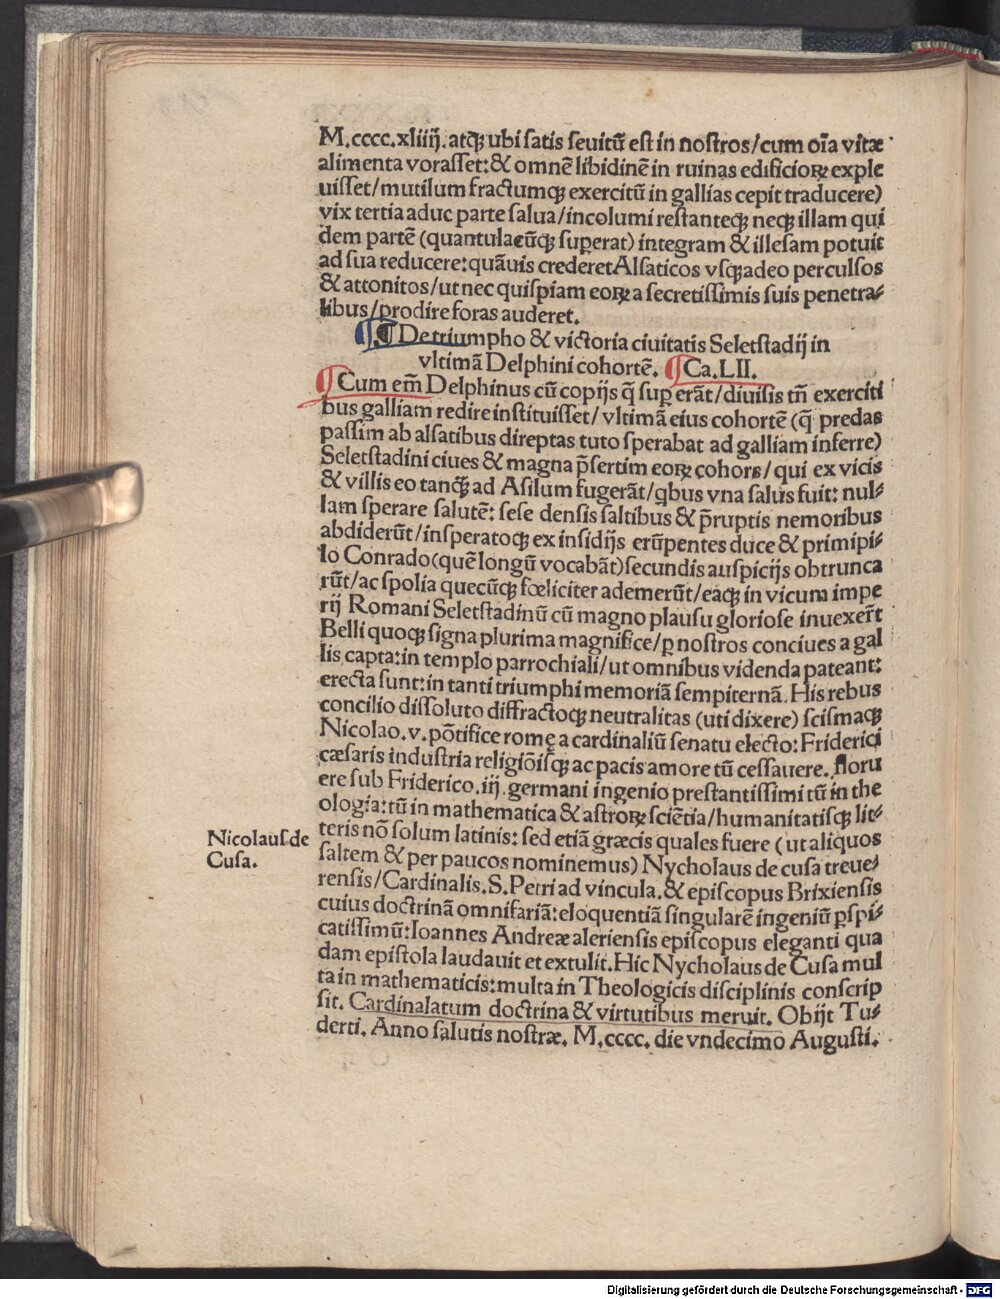 M.cccc.xliiij. atqꝫ ubi satis seuitū est in nostros/cum oīa vitæ
alimenta vorasset:& omnē libidinē in ruinas edificioꝝ exple
uisset/mutilum fractumqꝫ exercitū in gallias cepit traducere)
vix tertia aduc parte salua/incolumi restanteqꝫ neqꝫ illam qui
dem partē (quantulacūqꝫ suꝑerat) integram & illesam potuit
ad sua reducere:quāuis crederet Alsaticos vsqꝫadeo perculsos
& attonitos/ut nec quispiam eoꝝ a secretissimis suis penetra⸗
libus/prodire foras auderet.
¶ De triumpho & victoria ciuitatis Seletstadij in
vltimā Delphini cohortē. Ca.LII.
Cum em̄ Delphinus cū copijs q̄ suꝑ erāt/diuisis tn̄ exerciti
bus galliam redire instituisset/vltimā eius cohortē (q̄ predas
passim ab alsatibus direptas tuto sperabat ad galliam inferre)
Seletstadini ciues & magna p̄sertim eoꝝ cohors/qui ex vicis
& villis eo tanq̄ꝫ ad Asilum fugerāt/qbus vna salus fuit: nul⸗
lam sperare salutē: sese densis saltibus & p̄ruptis nemoribus
abdiderūt/insperatoqꝫ ex insidijs erūpentes duce & primipi⸗
lo Conrado(quē longū vocabāt)secundis auspicijs obtrunca
rūt/ac spolia quecūqꝫ fœliciter ademerūt/eaqꝫ in vicum impe
rij Romani Seletstadinū cū magno plausu gloriose inuexerūt
Belli quoqꝫ signa plurima magnifice/ꝑ nostros conciues a gal
lis capta:in templo parrochiali/ut omnibus videnda pateant:
erecta sunt:in tanti triumphi memoriā sempiternā. His rebus
concilio dissoluto diffractoqꝫ neutralitas (uti dixere) scismaqꝫ
Nicolao.v.pōtifice romę a cardinaliū senatu electo:Friderici
cæsaris industria religiōisqꝫ ac pacis amore tū cessauere. floru
ere sub Friderico.iij.germani ingenio prestantissimi tū in the
ologia:tū in mathematica & astroꝝ sciētia/humanitatisqꝫ lit⸗
teris nō solum latinis: sed etiā græcis quales fuere (ut aliquos
saltem & per paucos nominemus) Nycholaus de cusa treue⸗
rensis/Cardinalis.S.Petri ad vincula.& episcopus Brixiensis
cuius doctrinā omnifariā:eloquentiā singularē ingeniū ꝑspi⸗
catissimū:Ioannes Andreæ aleriensis episcopus eleganti qua
dam epistola laudauit et extulit.Hic Nycholaus de Cusa mul
ta in mathematicis:multa in Theologicis disciplinis conscrip
sit. Cardinalatum doctrina & virtutibus meruit. Obijt Tu⸗
derti. Anno salutis nostræ. M.cccc. die vndecimo Augusti.
Nicolaus de
Cusa.
Digitalisierung gefördert durch die Deutsche Forschungsgemeinschaft - DFG